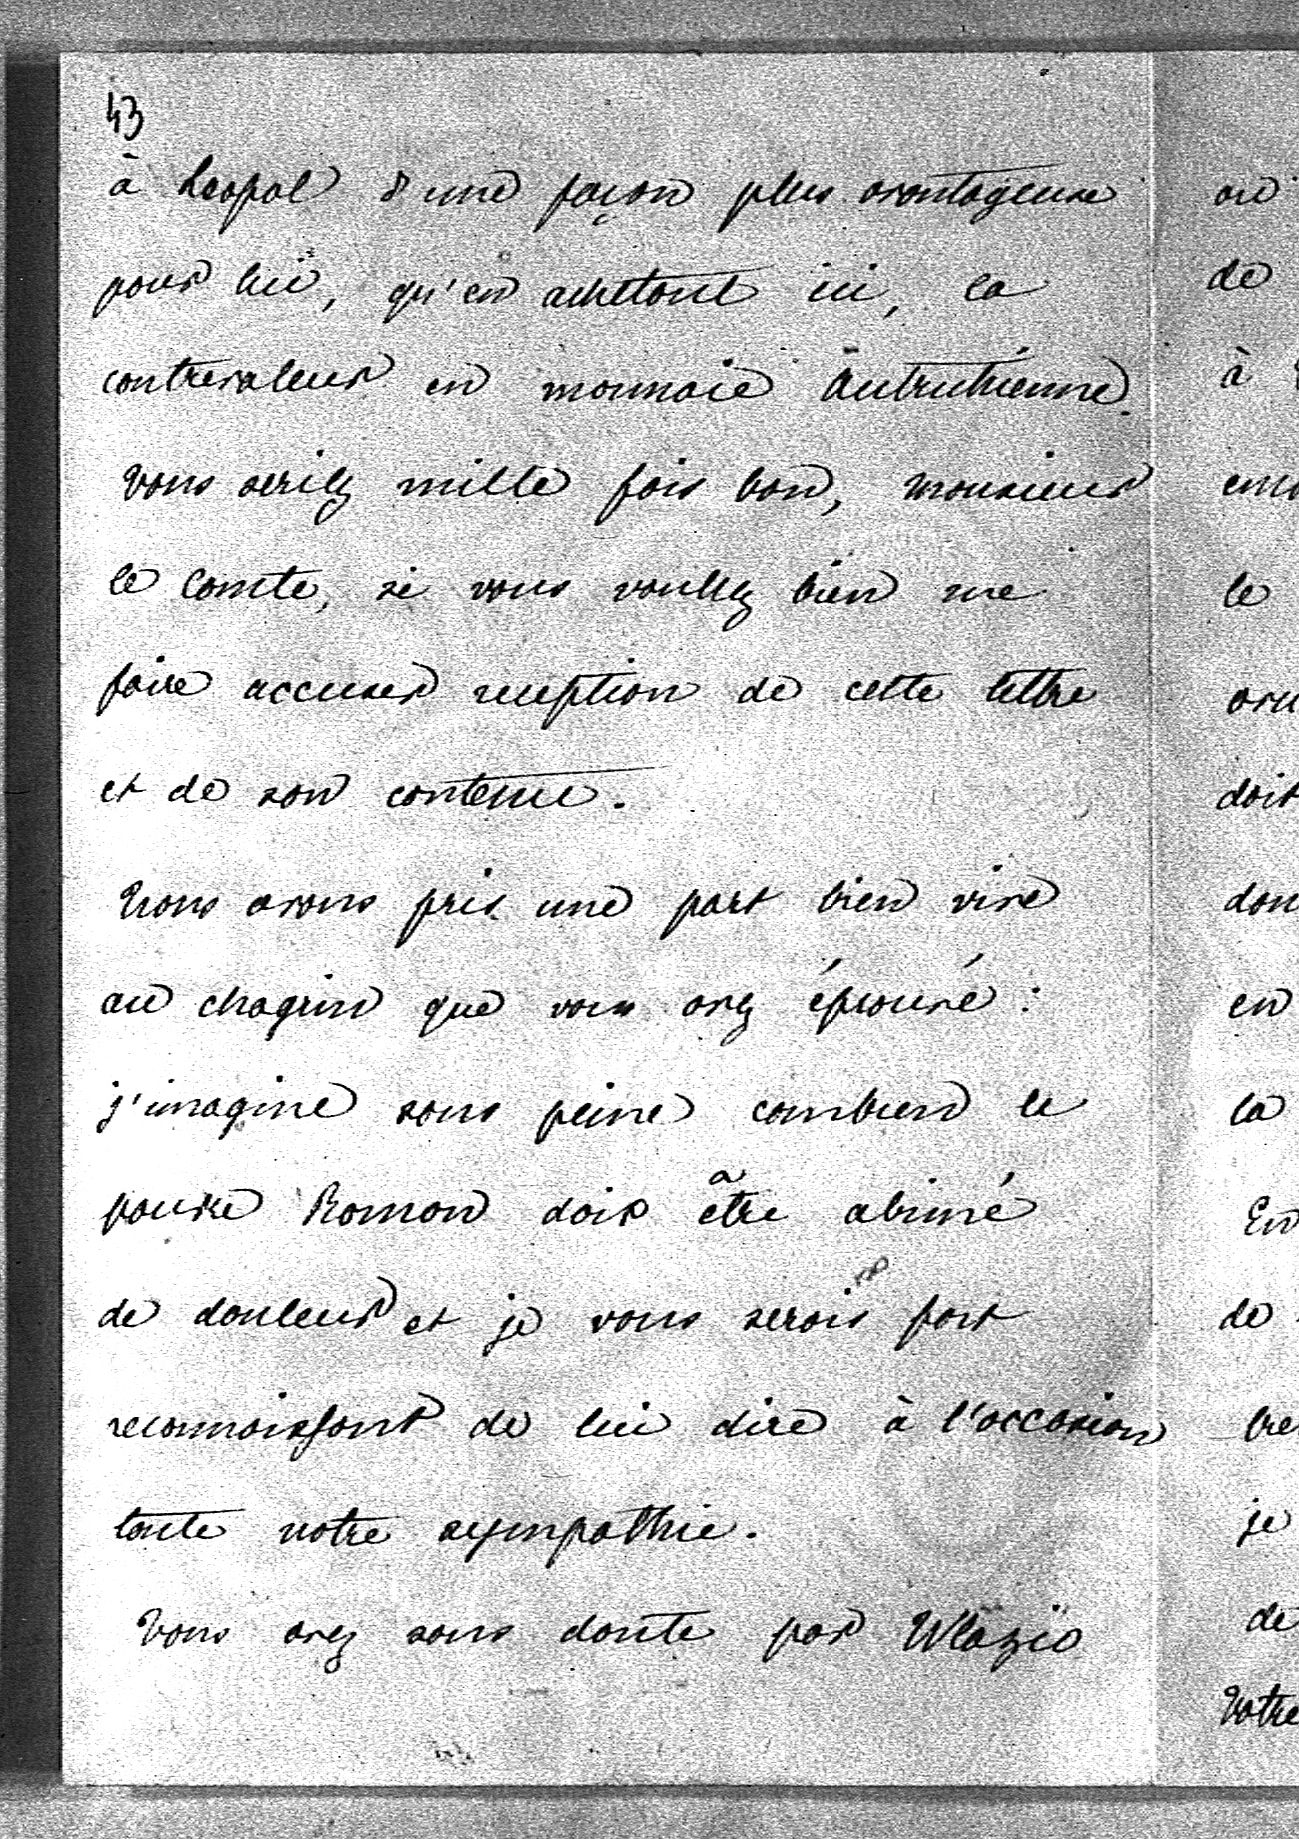 43
à Léopol d'une façon plus avantageuse
pour lui, qu'en achetant ici, la
contrevaleur en monnaie Autrichienne.
Vous seriez mille fois bon, monsieur
le Comte, si vous vouliez bien me
faire accuser reception de cette lettre
et de son contenu.
Nous avons pris une part bien vive
au chagrin que vous avez éprouvé :
j'imagine sans peine combien le
pauvre Roman doit être abimé
de douleur et je vous serais fort
reconnaissant de lui dire à l'occasion
toute notre sympathie.
Vous avez sans doute par Wlazio
au
de
à
le
doit
en
la
En
de
je
de
Votre